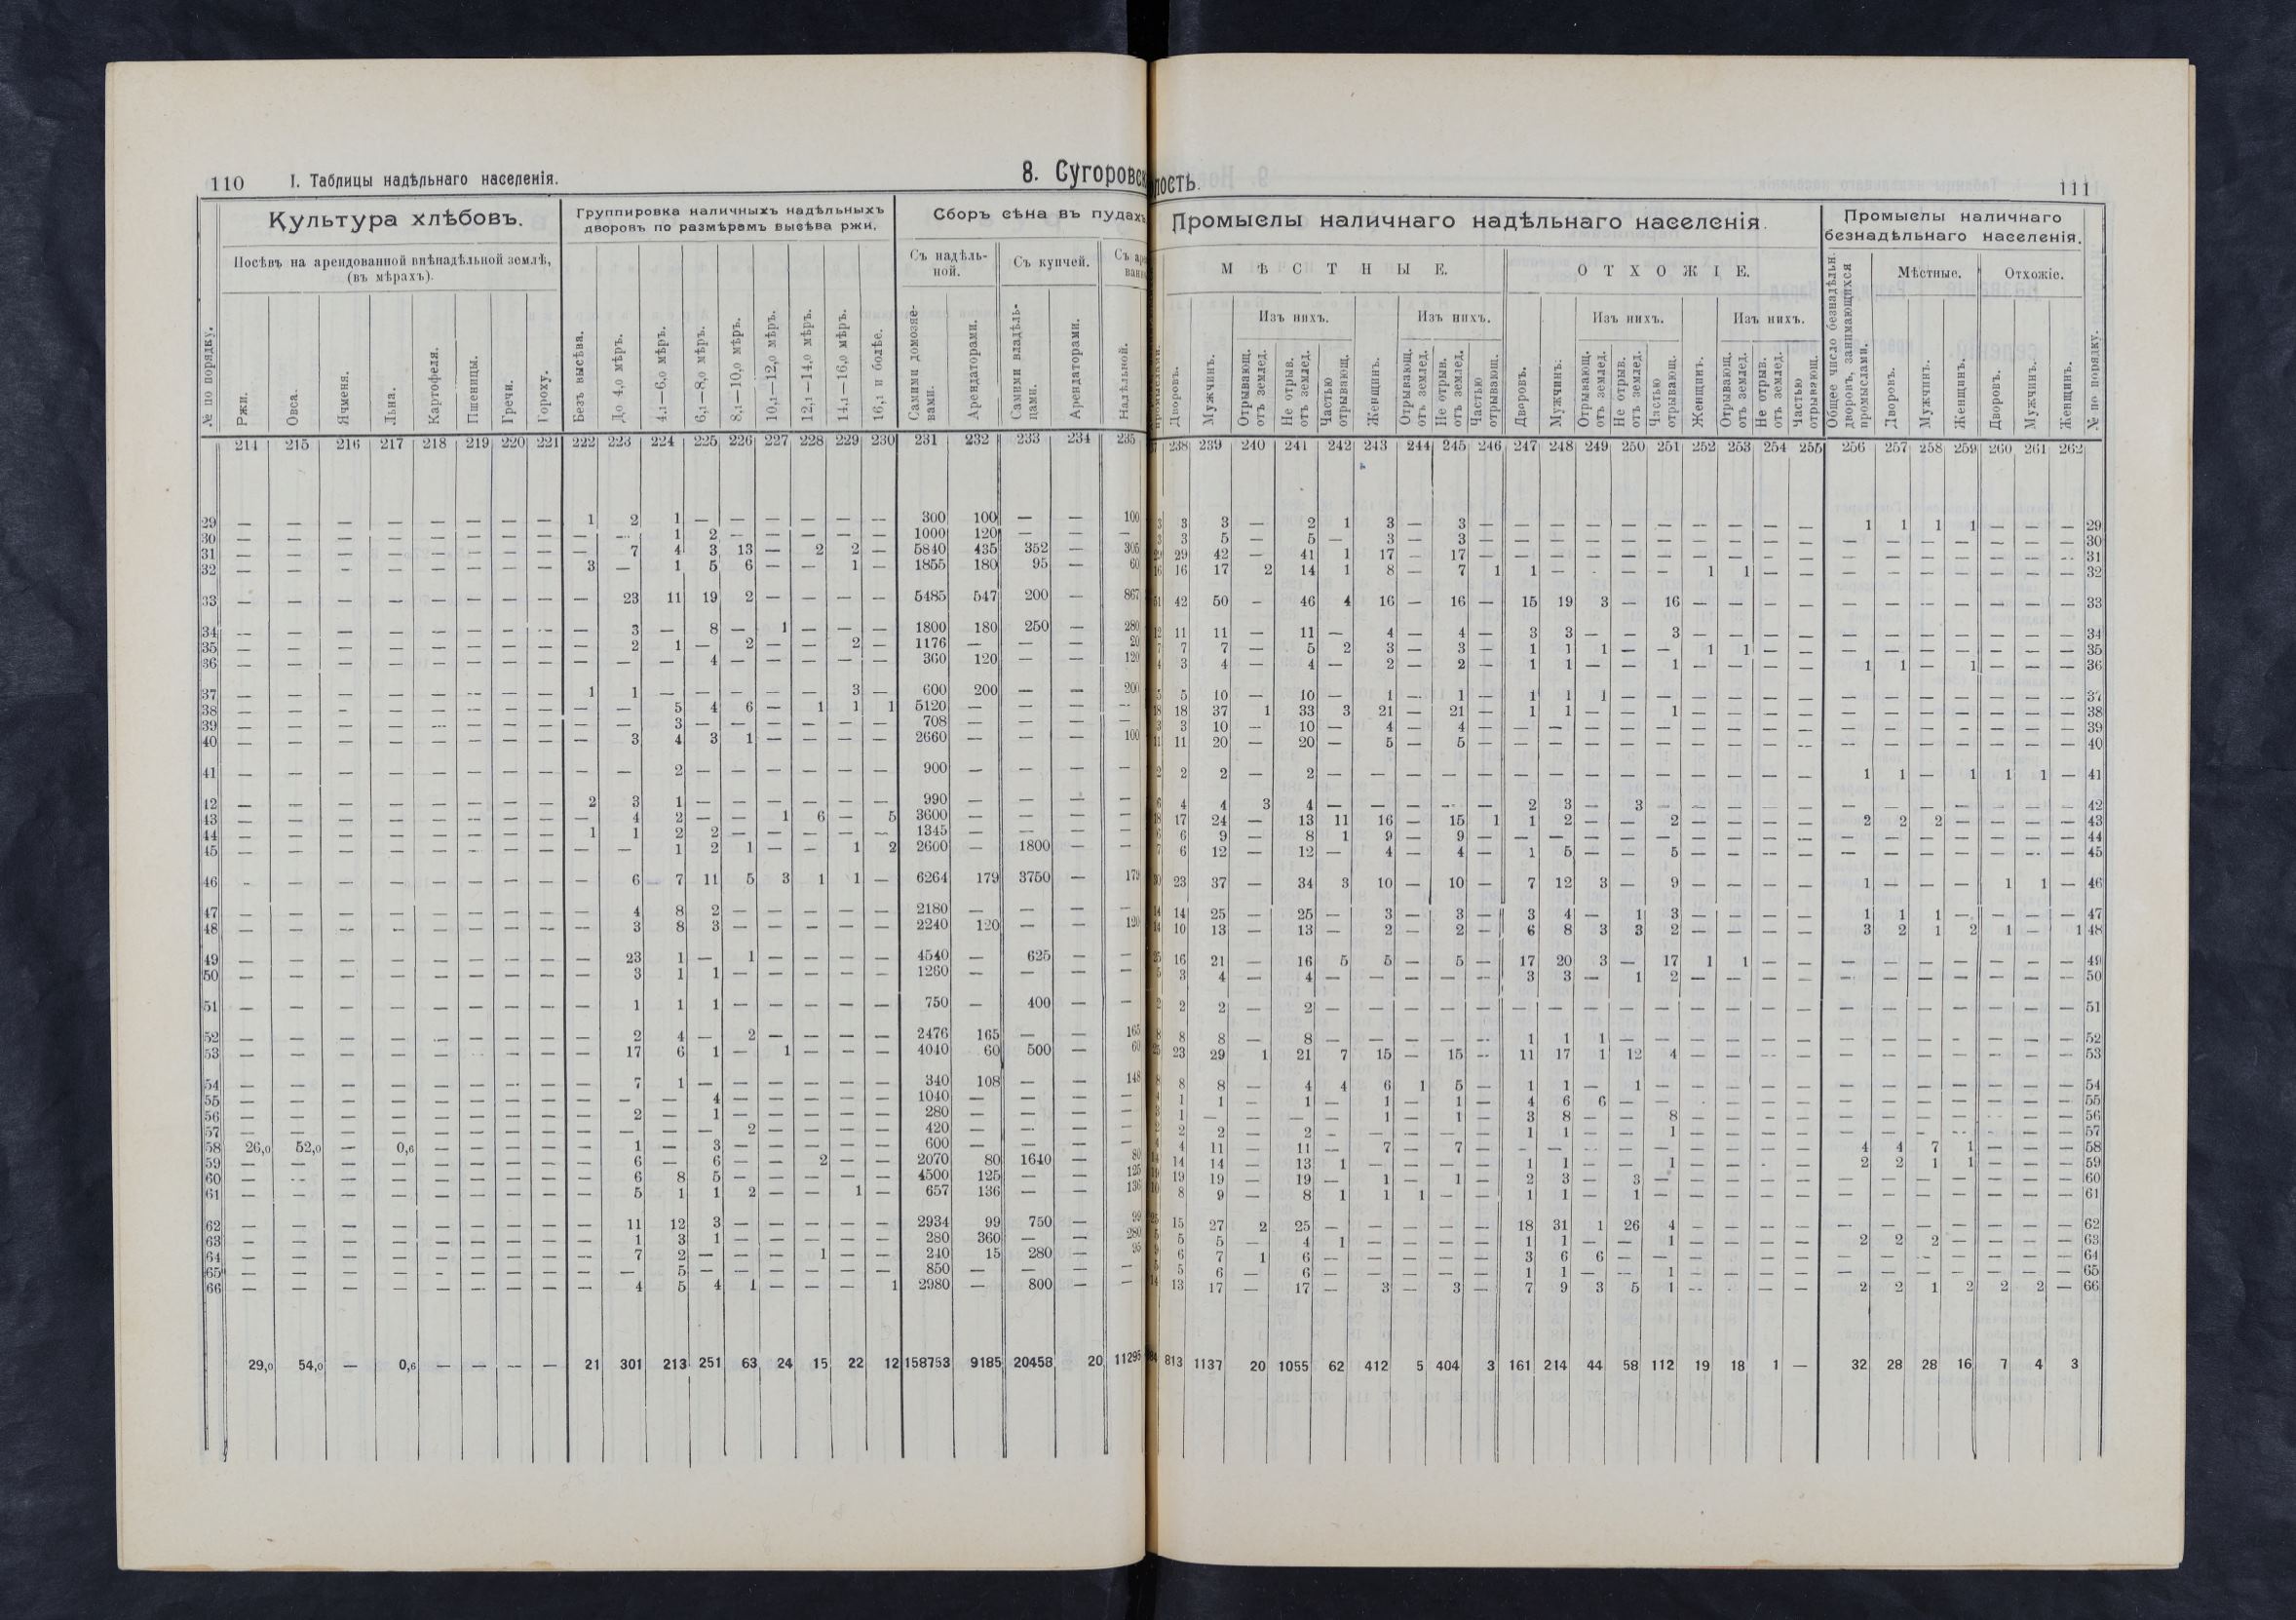 110 I. Таблицы надѣльнаго населенія. 8. Сугоровск
Культура хлѣбовъ. Группировка наличныхъ надѣльныхъ дворовъ по размѣрамъ высѣва ржи. Сборъ сѣна въ пудахъ
Посѣвъ на арендованной внѣнадѣльной землѣ, (въ мѣрахъ). Съ надѣльной. Съ купчей.
№ по порядку. Ржи. Овса. Ячменя. Льна. Картофеля. Пшеницы. Гречи. Гороху. Безъ высѣва. До 4,0 мѣръ. 4,1—6,0 мѣръ. 6,1—8,0 мѣръ. 8,1—10,0 мѣръ. 10,1—12,0 мѣръ. 12,1—14,0 мѣръ. 14,1—16,0 мѣръ. 16,1 и болѣе. Самими домохозяевами. Арендаторами. Самими владѣльцами. Арендаторами. Надѣльной.
214 215 216 217 218 219 220 221 222 223 224 225 226 227 228 229 230 231 232 233 234 235
29 — — — — — — — — 1 2 1 — — — — — — 300 100 — — 100
30 — — — — — — — — — — 1 2 — — — — — 1000 120 — — —
31 — — — — — — — — — 7 4 3 13 — 2 2 — 5840 435 352 — 306
32 — — — — — — — — 3 — 1 5 6 — — 1 — 1855 180 95 — 60
33 — — — — — — — — — 23 11 19 2 — — — — 5485 547 200 — 867
34 — — — — — — — — — 3 — 8 — 1 — — — 1800 180 250 — 280
35 — — — — — — — — — 2 1 — 2 — — 2 — 1176 — — — 20
36 — — — — — — — — — — — 4 — — — — — 360 120 — — 120
37 — — — — — — — — 1 1 — — — — — 3 — 600 200 — — 200
38 — — — — — — — — — — 5 4 6 — 1 1 1 5120 — — — —
39 — — — — — — — — — — 3 — — — — — — 708 — — — —
40 — — — — — — — — — 3 4 3 1 — — — — 2660 — — — 100
41 — — — — — — — — — — 2 — — — — — — 900 — — — —
42 — — — — — — — — 2 3 1 — — — — — — 990 — — — —
43 — — — — — — — — — 4 2 — — 1 6 — 5 3600 — — — —
44 — — — — — — — — 1 1 2 2 — — — — — 1345 — — — —
45 — — — — — — — — — — 1 2 1 — — 1 2 2600 — 1800 — —
46 — — — — — — — — — 6 7 11 5 3 1 1 — 6264 179 3750 — 179
47 — — — — — — — — — 4 8 2 — — — — — 2180 — — — —
48 — — — — — — — — — 3 8 3 — — — — — 2240 120 — — 120
49 — — — — — — — — — 23 1 — 1 — — — — 4540 — 625 — —
50 — — — — — — — — — 3 1 1 — — — — — 1260 — — — —
51 — — — — — — — — — 1 1 1 — — — — — 750 — 400 — —
52 — — — — — — — — — 2 4 — 2 — — — — 2476 165 — — 165
53 — — — — — — — — — 17 6 1 — 1 — — — 4040 60 500 — 60
54 — — — — — — — — — 7 1 — — — — — — 340 108 — — 148
55 — — — — — — — — — — — 4 — — — — — 1040 — — — —
56 — — — — — — — — — 2 — 1 — — — — — 280 — — — —
57 — — — — — — — — — — — — 2 — — — — 420 — — — —
58 26,0 52,0 — 0,6 — — — — — 1 — 3 — — — — — 600 — — — —
59 — — — — — — — — — 6 — 6 — — 2 — — 2070 80 1640 — 80
60 — — — — — — — — — 6 8 5 — — — — — 4500 125 — — 125
61 — — — — — — — — — 5 1 1 2 — — 1 — 657 136 — — 136
62 — — — — — — — — — 11 12 3 — — — — — 2934 99 750 — 99
63 — — — — — — — — — 1 3 1 — — — — — 280 360 — — 280
64 — — — — — — — — — 7 2 — — — 1 — — 240 15 280 — 95
65 — — — — — — — — — — 5 — — — — — — 850 — — — —
66 — — — — — — — — — 4 5 4 1 — — — 1 2980 — 800 — —
29,0 54,0 — 0,6 — — — — 21 301 213 251 63 24 15 22 12 158753 9185 20458 20 11295
лость. 111
Промыслы наличнаго надѣльнаго населенія. Промыслы наличнаго безнадѣльнаго населенія.
МѢСТНЫЕ. ОТХОЖІЕ. Мѣстные. Отхожіе.
Изъ нихъ. Изъ нихъ. Изъ нихъ. Изъ нихъ.
Дворовъ. Мужчинъ. Отрывающ. отъ землед. Не отрыв. отъ землед. Частью отрывающ. Женщинъ. Отрывающ. отъ землед. Не отрыв. отъ землед. Частью отрывающ. Дворовъ. Мужчинъ. Отрывающ. отъ землед. Не отрыв. отъ землед. Частью отрывающ. Женщинъ. Отрывающ. отъ землед. Не отрыв. отъ землед. Частью отрывающ. Общее число безнадѣльн. дворовъ, занимающихся промыслами. Дворовъ. Мужчинъ. Женщинъ. Дворовъ. Мужчинъ. Женщинъ. № по порядку.
238 239 240 241 242 243 244 245 246 247 248 249 250 251 252 253 254 255 256 257 258 259 260 261 262
3 3 — 2 1 3 — 3 — — — — — — — — — — 1 1 1 1 — — — 29
3 5 — 5 — 3 — 3 — — — — — — — — — — — — — — — — — 30
29 42 — 41 1 17 — 17 — — — — — — — — — — — — — — — — — 31
16 17 2 14 1 8 — 7 1 1 — — — — 1 1 — — — — — — — — — 32
42 50 — 46 4 16 — 16 — 15 19 3 — 16 — — — — — — — — — — — 33
11 11 — 11 — 4 — 4 — 3 3 — — 3 — — — — — — — — — — — 34
7 7 — 5 2 3 — 3 — 1 1 1 — — 1 1 — — — — — — — — — 35
3 4 — 4 — 2 — 2 — 1 1 — — 1 — — — — 1 1 — 1 — — — 36
5 10 — 10 — 1 — 1 — 1 1 1 — — — — — — — — — — — — — 37
18 37 1 33 3 21 — 21 — 1 1 — — 1 — — — — — — — — — — — 38
3 10 — 10 — 4 — 4 — — — — — — — — — — — — — — — — — 39
11 20 — 20 — 5 — 5 — — — — — — — — — — — — — — — — — 40
2 2 — 2 — — — — — — — — — — — — — — 1 1 — 1 1 1 — 41
4 4 3 4 — — — — — 2 3 — 3 — — — — — — — — — — — — 42
17 24 — 13 11 16 — 15 1 1 2 — — 2 — — — — 2 2 2 — — — — 43
6 9 — 8 1 9 — 9 — — — — — — — — — — — — — — — — — 44
6 12 — 12 — 4 — 4 — 1 5 — — 5 — — — — — — — — — — — 45
23 37 — 34 3 10 — 10 — 7 12 3 — 9 — — — — 1 — — — 1 1 — 46
14 25 — 25 — 3 — 3 — 3 4 — 1 3 — — — — 1 1 1 — — — — 47
10 13 — 13 — 2 — 2 — 6 8 3 3 2 — — — — 3 2 1 2 1 — 1 48
16 21 — 16 5 5 — 5 — 17 20 3 — 17 1 1 — — — — — — — — — 49
3 4 — 4 — — — — — 3 3 — 1 2 — — — — — — — — — — — 50
2 2 — 2 — — — — — — — — — — — — — — — — — — — — — 51
8 8 — 8 — — — — — 1 1 1 — — — — — — — — — — — — — 52
23 29 1 21 7 15 — 15 — 11 17 1 12 4 — — — — — — — — — — — 53
8 8 — 4 4 6 1 5 — 1 1 — 1 — — — — — — — — — — — — 54
1 1 — 1 — 1 — 1 — 4 6 6 — — — — — — — — — — — — — 55
1 — — — — 1 — 1 — 3 8 — — 8 — — — — — — — — — — — 56
2 2 — 2 — — — — — 1 1 — — 1 — — — — — — — — — — — 57
4 11 — 11 — 7 — 7 — — — — — — — — — — 4 4 7 1 — — — 58
14 14 — 13 1 — — — — 1 1 — — 1 — — — — 2 2 1 1 — — — 59
19 19 — 19 — 1 — 1 — 2 3 — 3 — — — — — — — — — — — — 60
8 9 — 8 1 1 1 — — 1 1 — 1 — — — — — — — — — — — — 61
15 27 2 25 — — — — — 18 31 1 26 4 — — — — — — — — — — — 62
5 5 — 4 1 — — — — 1 1 — — 1 — — — — 2 2 2 — — — — 63
6 7 1 6 — — — — — 3 6 6 — — — — — — — — — — — — — 64
5 6 — 6 — — — — — 1 1 — — 1 — — — — — — — — — — — 65
13 17 — 17 — 3 — 3 — 7 9 3 5 1 — — — — 2 2 1 2 2 2 — 66
813 1137 20 1055 62 412 5 404 3 161 214 44 58 112 19 18 1 — 32 28 28 16 7 4 3